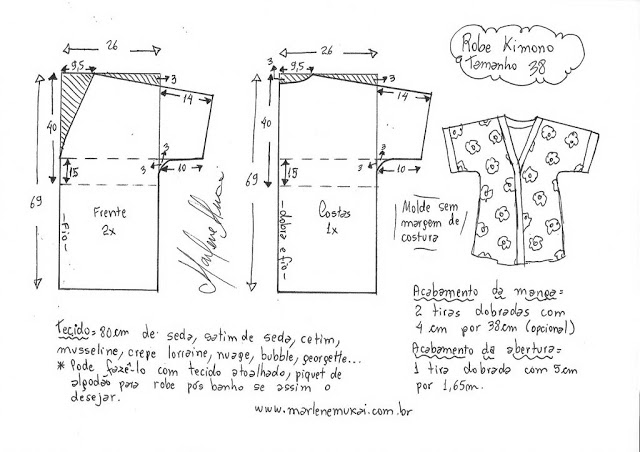 Robe Kimono
Tamanho 38
26
9,5
3
14
40
69
3
3
10
15
Frente
2x
-Fio-
Marlene Mukai
26
3
9,5
3
14
40
69
3
3
10
15
Costas
1x
-dobra e fio-
Molde sem
margem de
costura
Tecido= 80cm de seda, satim de seda, cetim,
musseline, crepe lorraine, nuage, bubble, georgette...
* Pode fazê-lo com tecido atoalhado, piquet de
algodão para robe pós banho se assim o
desejar.
Acabamento da manga=
2 tiras dobradas com
4 cm por 38cm (opcional)
Acabamento da abertura=
1 tira dobrada com 5cm
por 1,65m.
www.marlenemukai.com.br